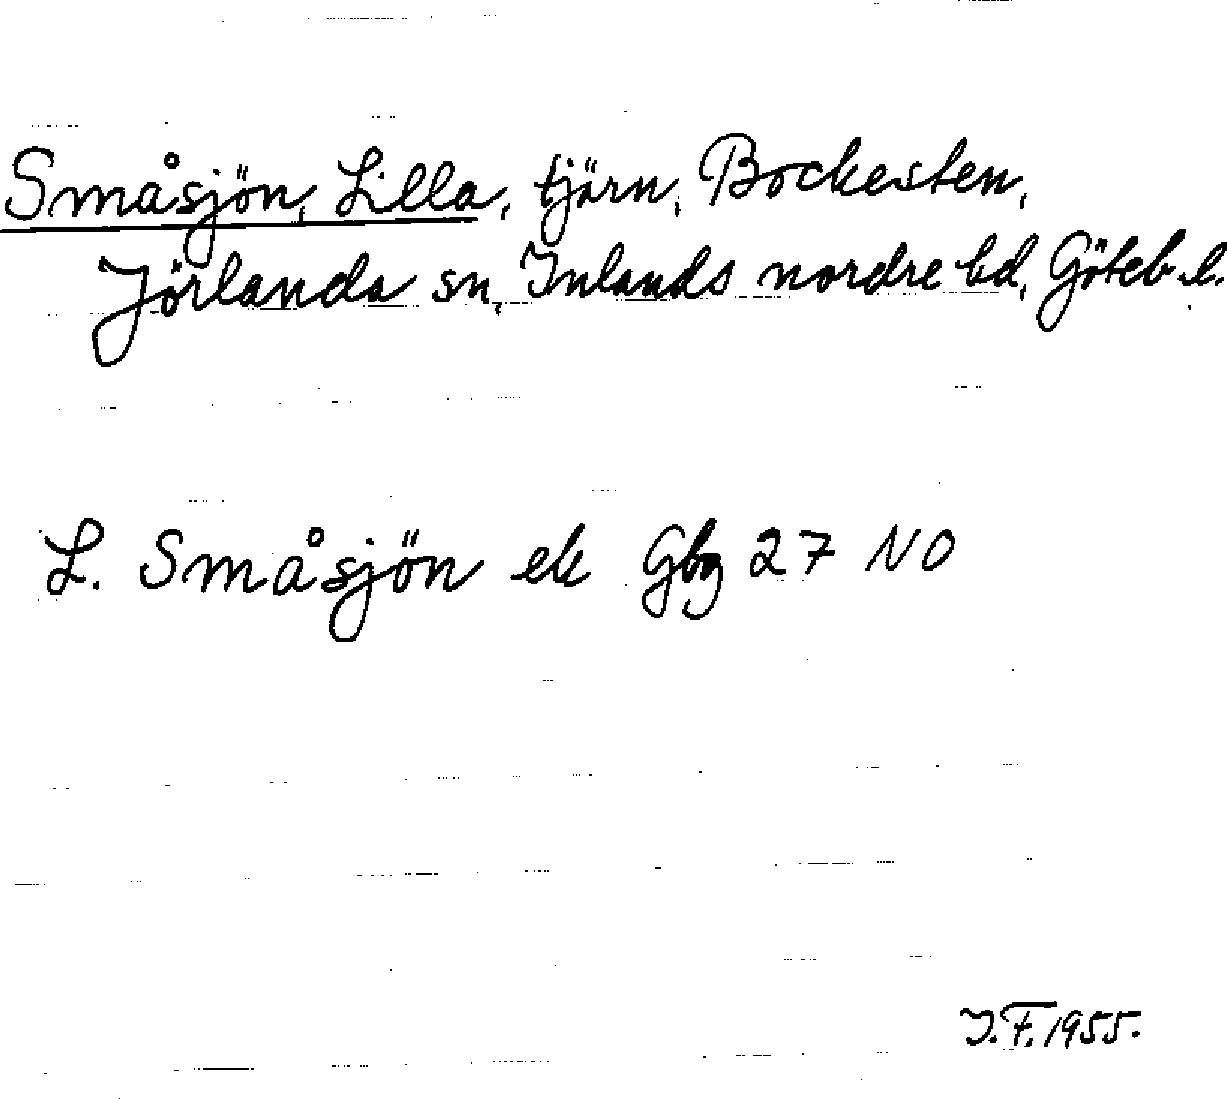 Småsjön, Lilla, tjärn, Bockesten,
Jörlanda sn, Inlands nordre hd, Göteb. l.
L. Småsjön ek Gbg 27 NO
I.F. 1955.